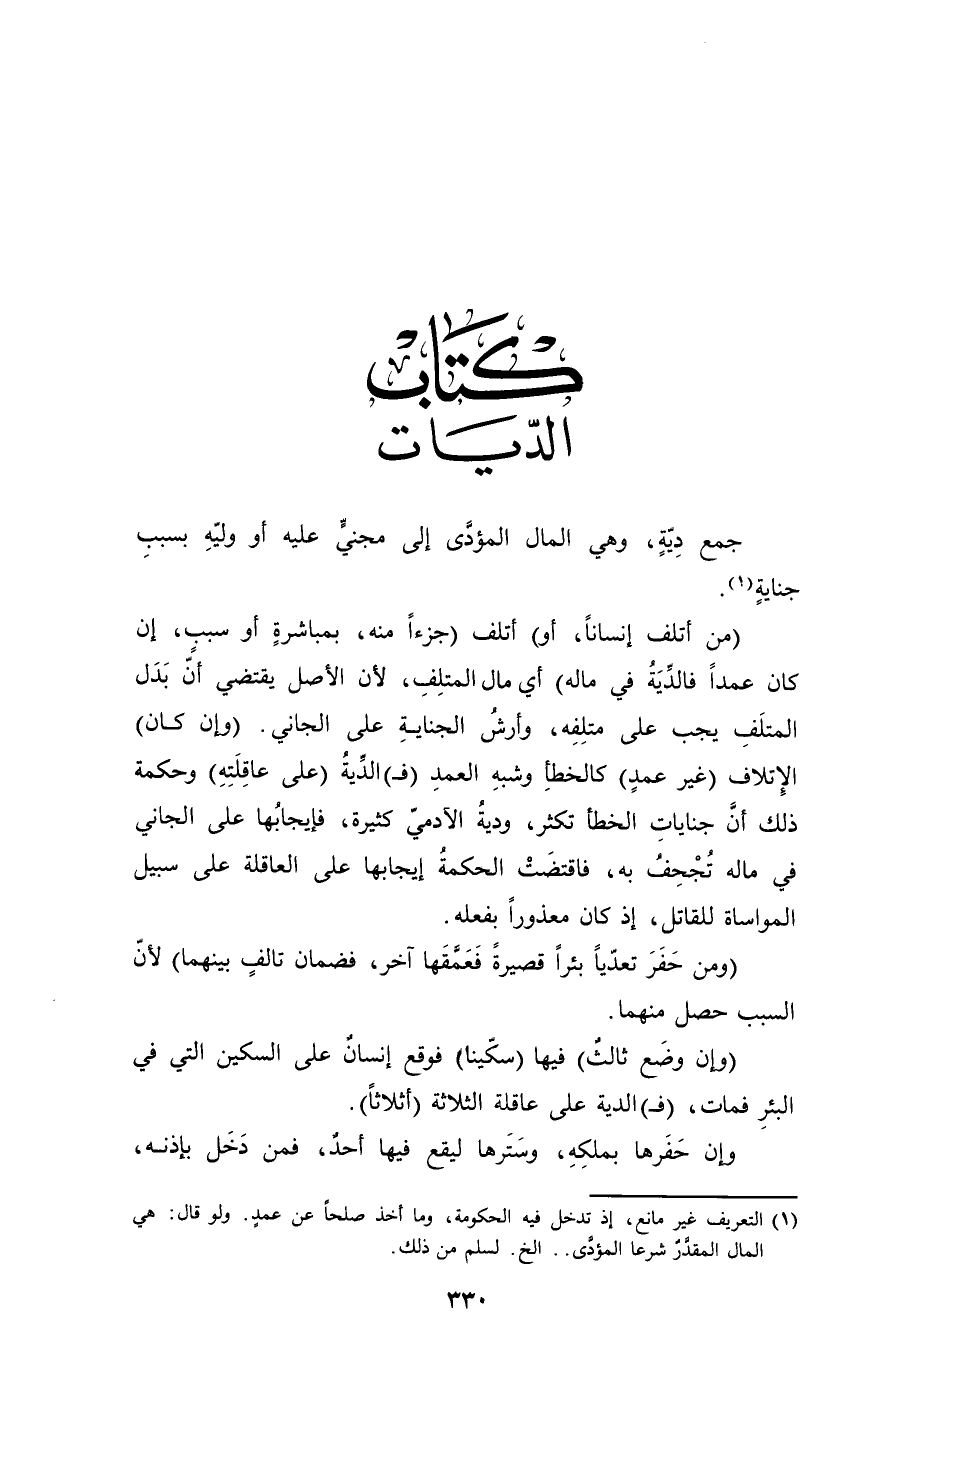 كتاب
الدّيات
جمع دِيّةٍ، وهي المال المؤدَّى إلى مجنيٍّ عليه أو وليّهِ بسببِ
جنايةٍ(١).
(من أتلف إنساناً، أو) أتلف (جزءاً منه، بمباشرةٍ أو سببٍ، إن
كان عمداً فالدِّيَةُ في ماله) أي مال المتلِفِ، لأن الأصل يقتضي أنّ بَدَل
المتلَفِ يجب على متلِفِه، وأرشُ الجنايةِ على الجاني. (وإن كان)
الإِتلاف (غير عمدٍ) كالخطأِ وشبهِ العمدِ (فـ)الدِّيةُ (على عاقِلَتِهِ) وحكمة
ذلك أنَّ جناياتِ الخطأ تكثر، وديةُ الآدميّ كثيرة، فإيجابُها على الجاني
في ماله تُجْحِفُ به، فاقتضَتْ الحكمةُ إيجابها على العاقلة على سبيل
المواساة للقاتل، إذ كان معذوراً بفعله.
(ومن حَفَرَ تعدّياً بئراً قصيرةً فَعَمَّقَها آخر، فضمان تالفٍ بينهما) لأنّ
السبب حصل منهما.
(وإن وضَع ثالثٌ) فيها (سكّينا) فوقع إنسانٌ على السكين التي في
البئرِ فمات، (فـ)الدية على عاقلة الثلاثة (أثلاثاً).
وإن حَفَرها بملكِهِ، وسَتَرها ليقع فيها أحدٌ، فمن دَخَل بإذنـه،
(١) التعريف غير مانع، إذ تدخل فيه الحكومة، وما أخذ صلحاً عن عمدٍ. ولو قال: هي
المال المقدَّرٌ شرعا المؤدَّى.. الخ. لسلم من ذلك.
٣٣٠